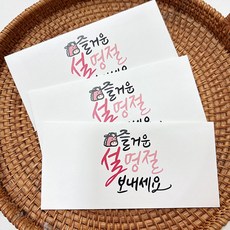 즐거운
설명절
즐거운
설명절
즐거운
설명절
보내세요